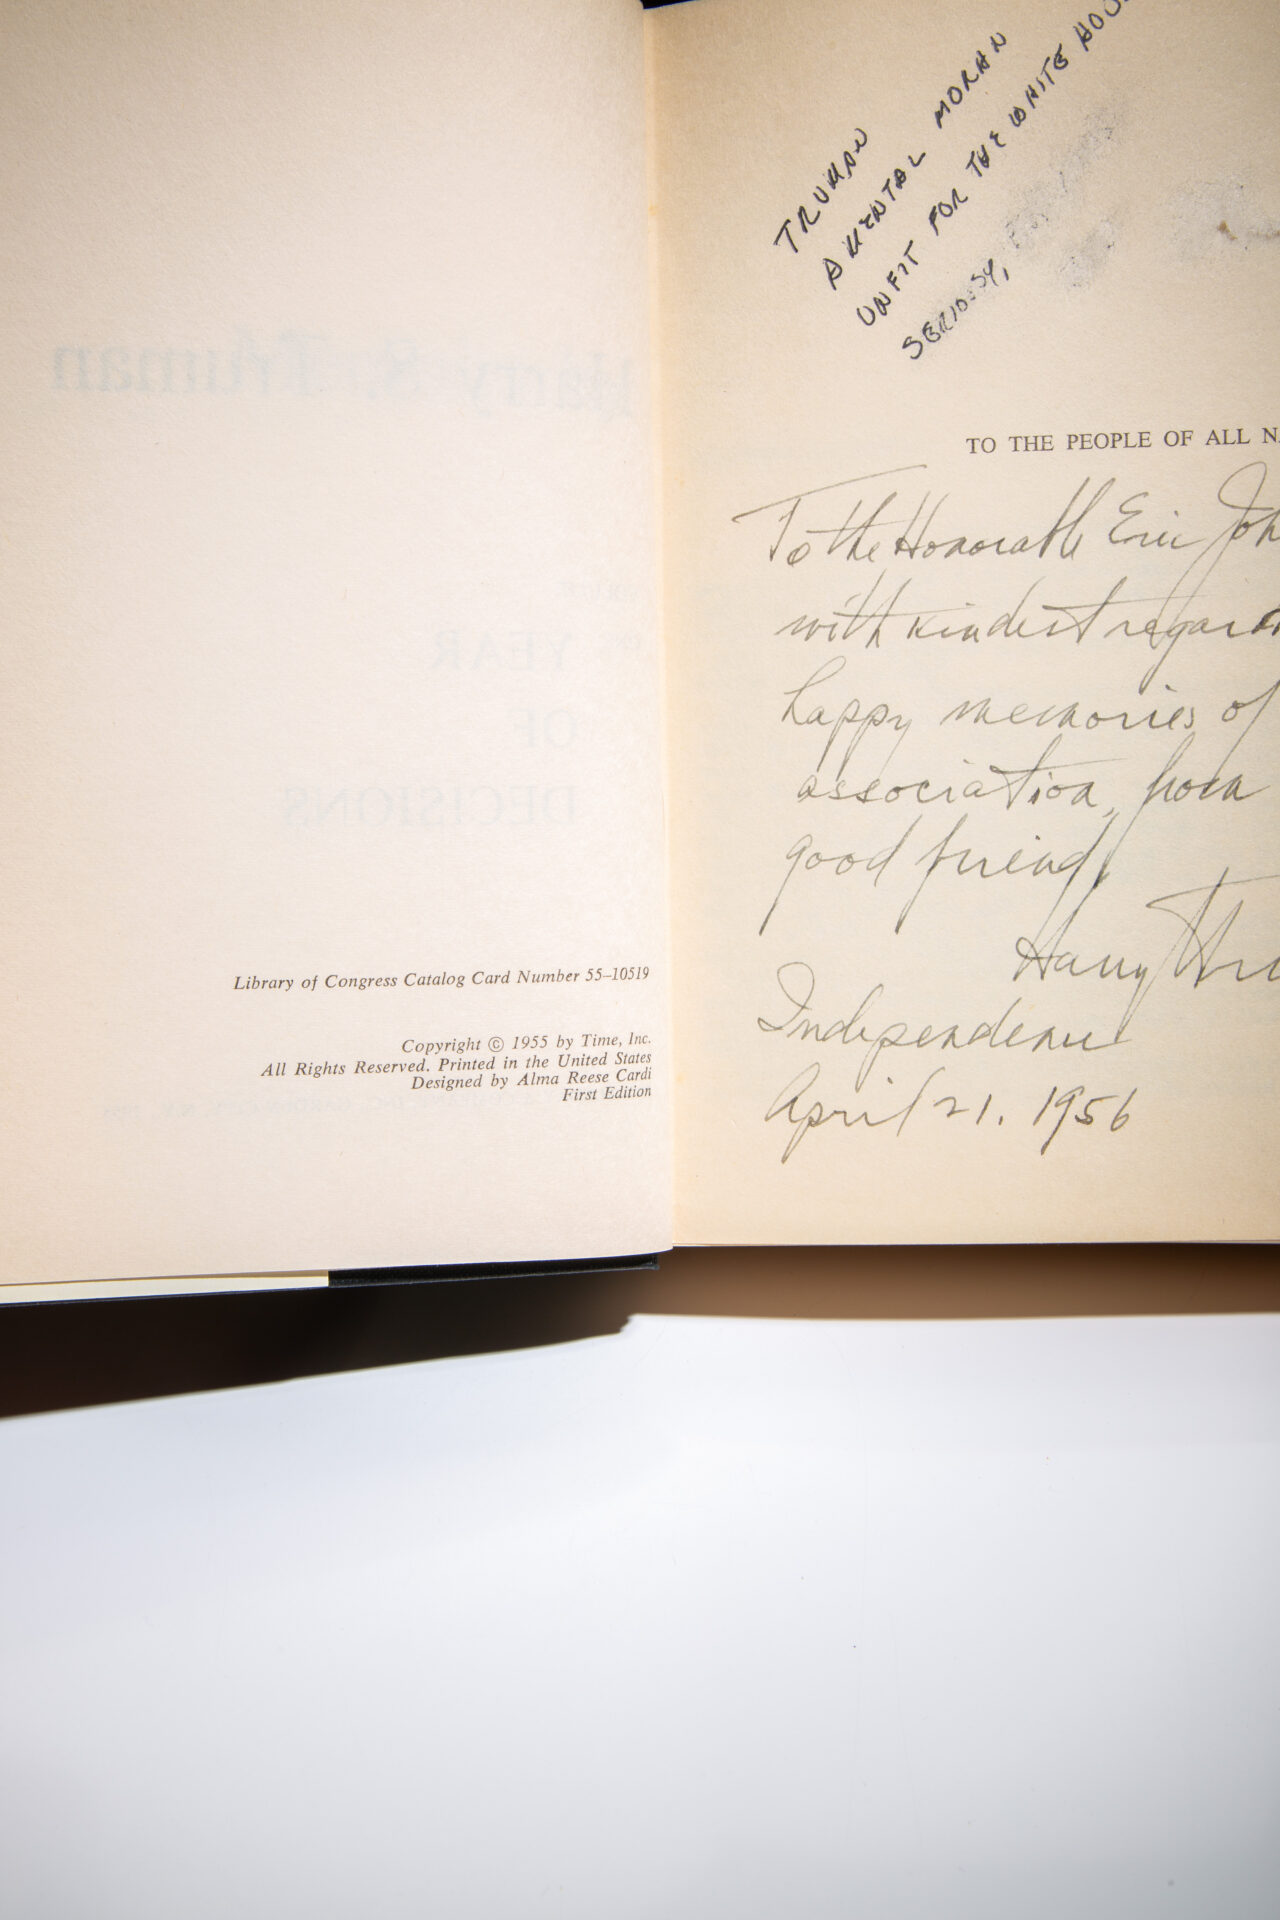 Harry S. Truman
YEAR
OF
DECISIONS
Library of Congress Catalog Card Number 55–10519
Copyright © 1955 by Time, Inc.
All Rights Reserved. Printed in the United States
Designed by Alma Reese Cardi
First Edition
TRUMAN
A MENTAL MORAN
UNFIT FOR THE WHITE HOU
TO THE PEOPLE OF ALL NA
To the Honorable Eric Joh
with kindest regar
happy memories of
association, from
good friend,
Harry Tru
Independence
April 21. 1956